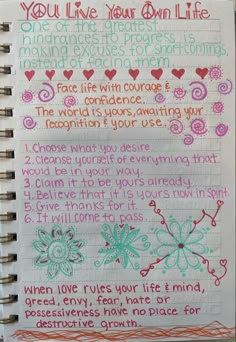 You Live Your Own Life
One of the greatest
hindrances to progress is
making excuses for shortcomings,
instead of facing them.
Face life with courage &
confidence.
The world is yours, awaiting your
recognition & your use.
1. Choose what you desire.
2. Cleanse yourself of everything that
would be in your way.
3. Claim it to be yours already.
4. Believe that it is yours now in Spirit.
5. Give thanks for it.
6. It will come to pass.
When love rules your life & mind,
greed, envy, fear, hate or
possessiveness have no place for
destructive growth.